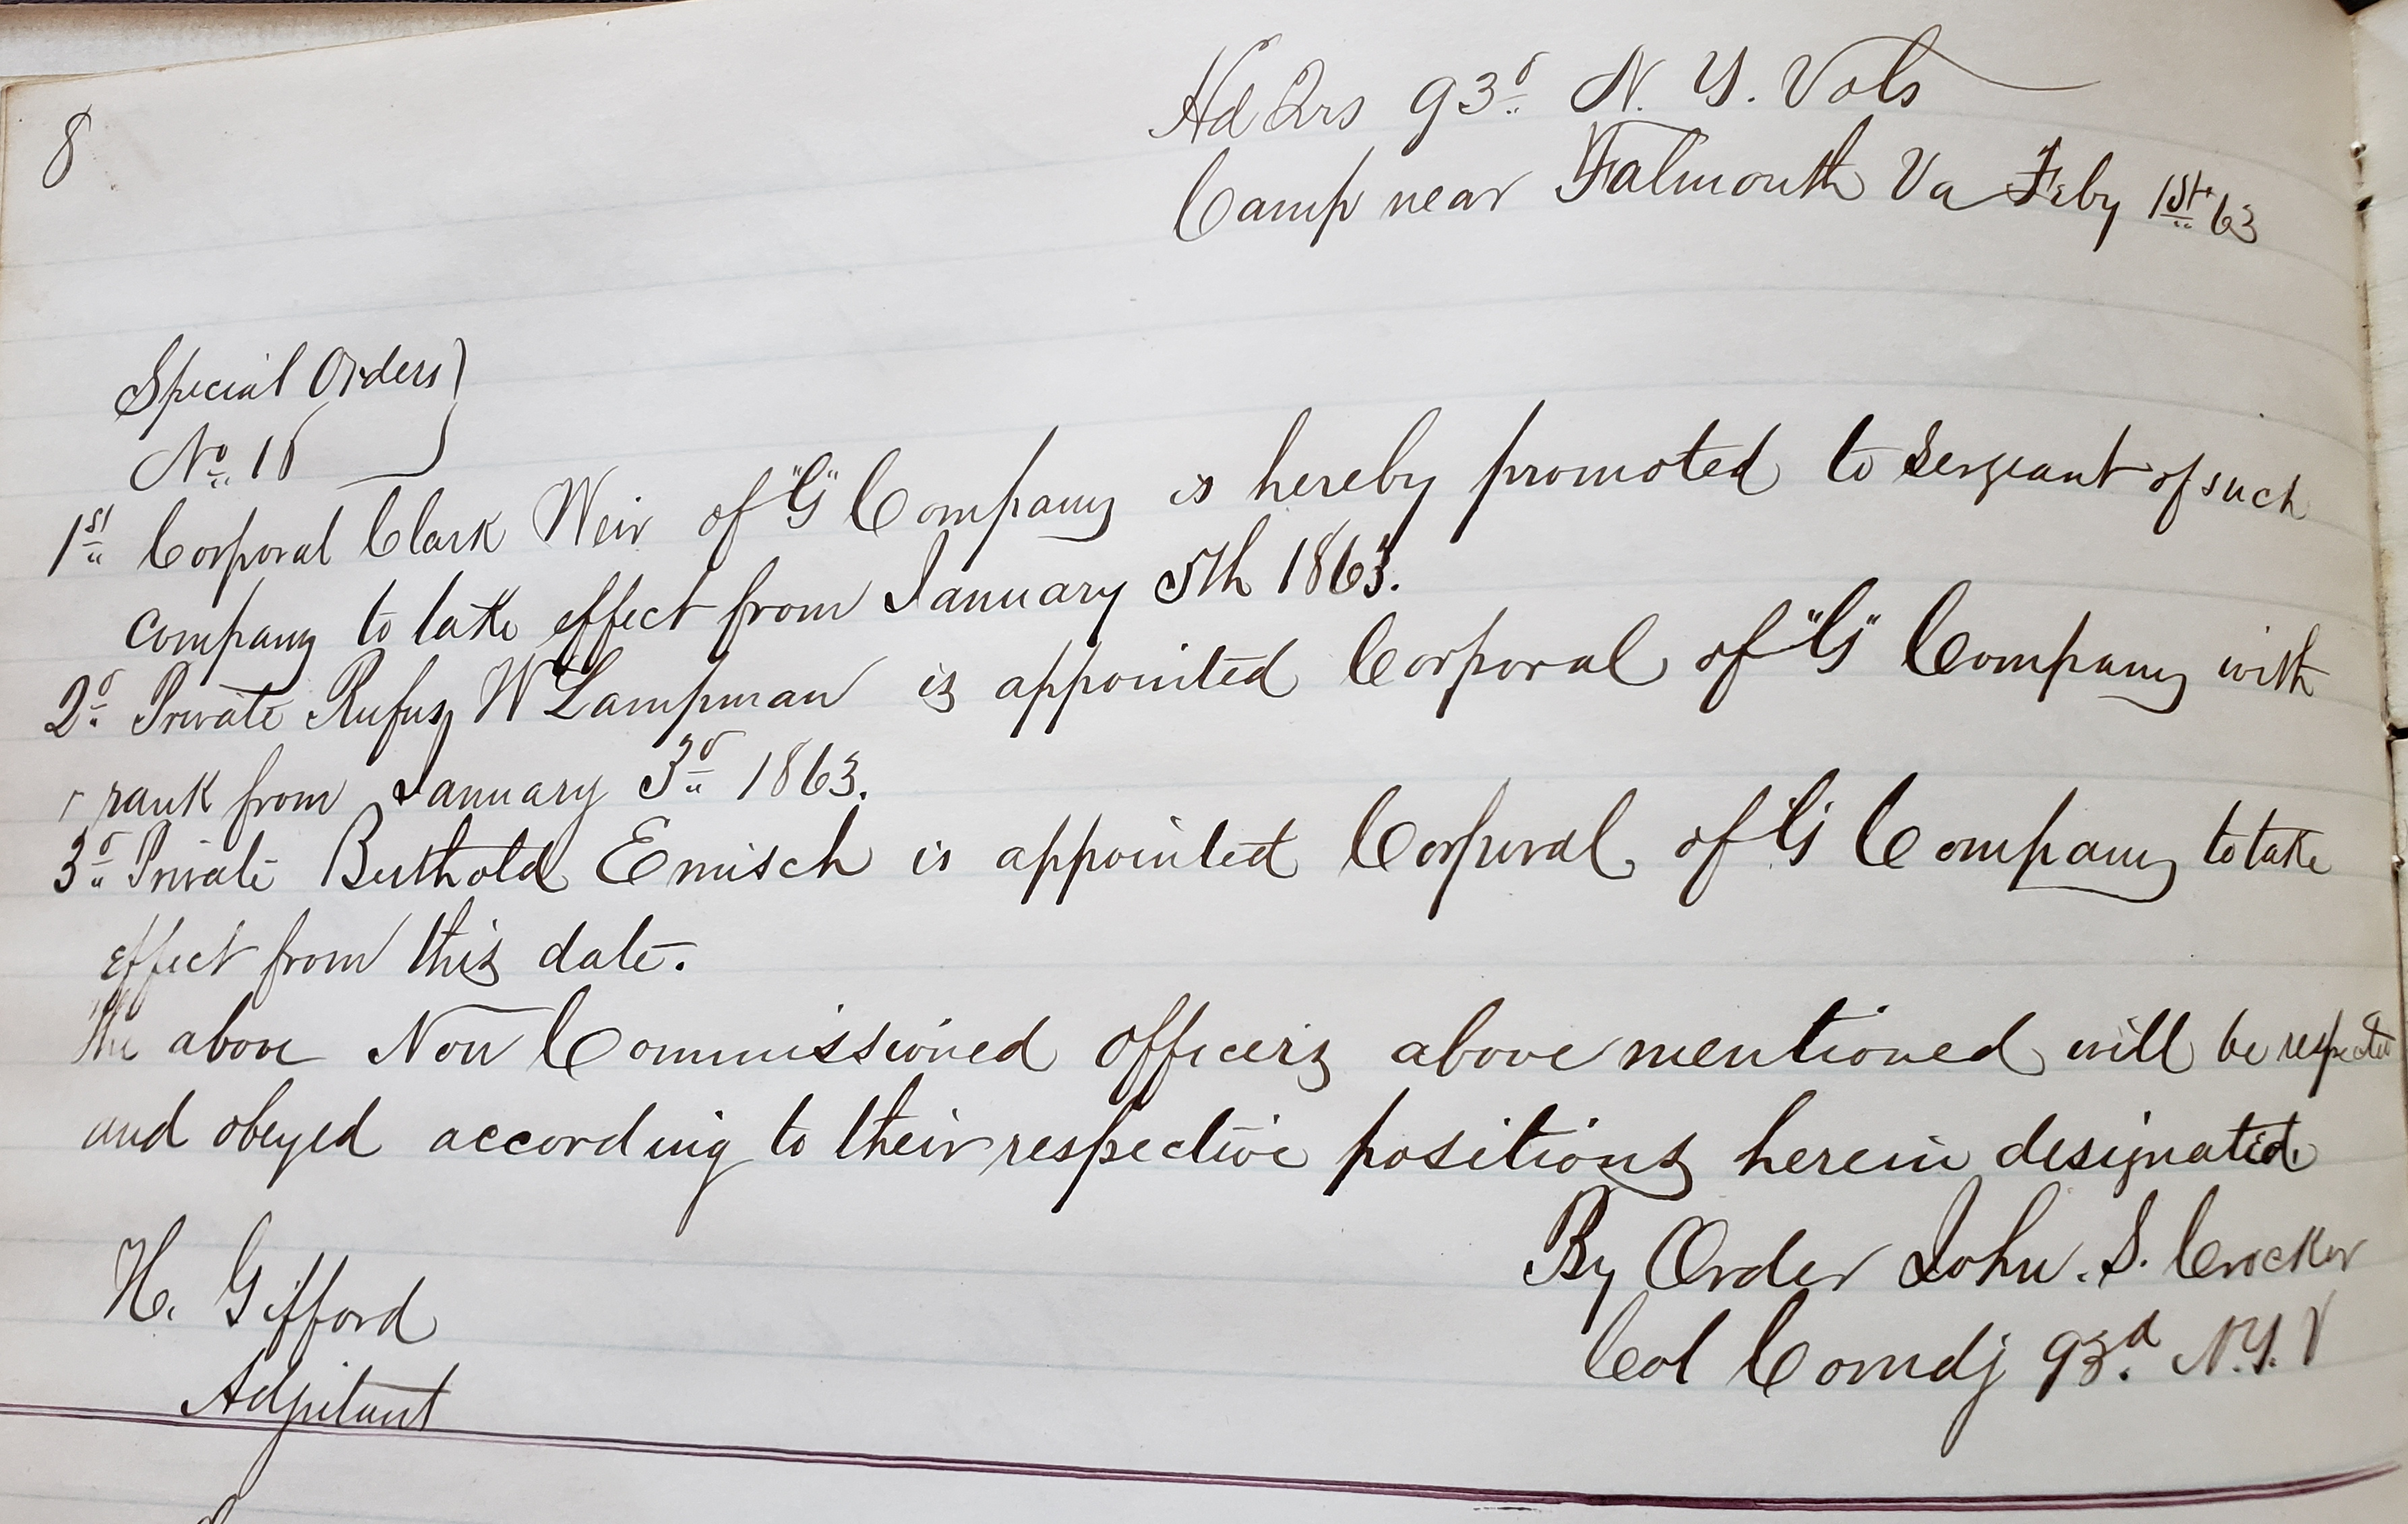 8
Hd Qrs 93d N. Y. Vols
Camp near Falmouth Va Feby 1st 63
Special Orders
No
1st Corporal Clark Weir of "G" Company is hereby promoted to Sergeant of such
company to take effect from January 5th 1863.
2d Private Rufus W Lampman is appointed Corporal of "G" Company with
rank from January 3d 1863.
3d Private Berthold Emisch is appointed Corporal of "G" Company to take
effect from this date.
The above Non Commissioned officers above mentioned will be respected
and obeyed according to their respective positions herein designated.
By Order John. S. Crocker
Col Comdg 93d. N.Y. V
H. Gifford
Adjutant